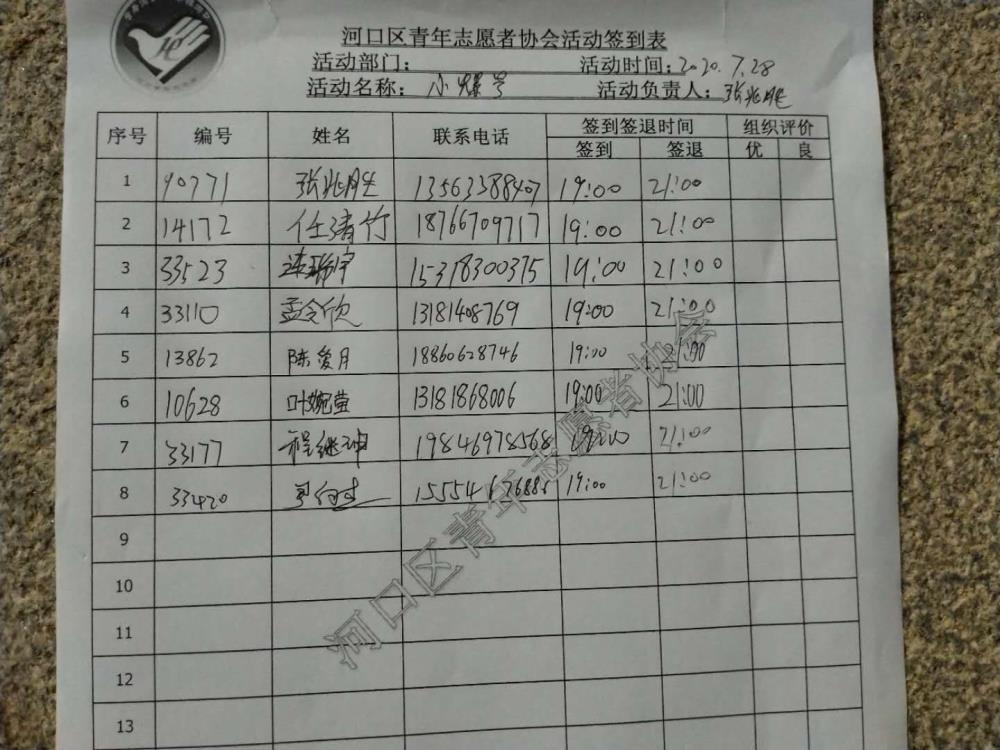 河口区青年志愿者协会活动签到表
活动部门： 活动时间：2020.7.28
活动名称： 小爆号 活动负责人：张兆胜
序号 编号 姓名 联系电话 签到签退时间 组织评价
签到 签退 优 良
1 90771 张兆胜 13563388407 19:00 21:00
2 14172 任清竹 18766709717 19:00 21:00
3 33523 15318300375 19:00 21:00
4 33110 孟令欣 13181408769 19:00 21:00
5 13862 陈爱月 18860628746 19:00 21:00
6 10628 叶婉莹 13181868006 19:00 21:00
7 33177 程继坤 19846978568 19:00 21:00
8 33420 19:00 21:00
9
10
11
12
13
河口区青年志愿者协会